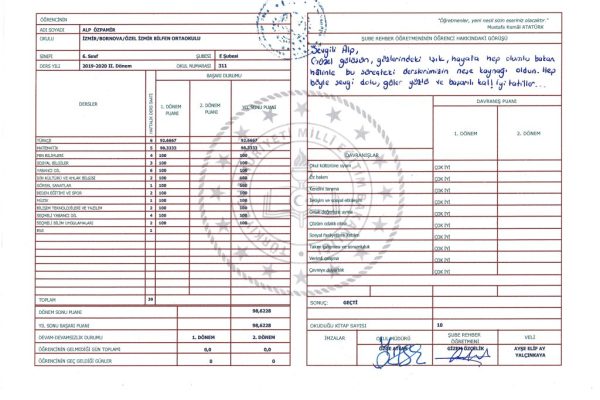 ÖĞRENCİNİN
ADI SOYADI ALP ÖZPAMİR
OKULU İZMİR/BORNOVA/ÖZEL İZMİR BİLFEN ORTAOKULU
SINIFI 6. Sınıf ŞUBESİ E Şubesi
DERS YILI 2019-2020 II. Dönem OKUL NUMARASI 311
DERSLER
HAFTALIK DERS SAATİ
BAŞARI DURUMU
1. DÖNEM PUANI
2. DÖNEM PUANI
YIL SONU PUANI
TÜRKÇE 6 92,6667 92,6667
MATEMATİK 5 98,3333 98,3333
FEN BİLİMLERİ 4 100 100
SOSYAL BİLGİLER 3 100 100
YABANCI DİL 100 100
DİN KÜLTÜRÜ VE AHLAK BİLGİSİ 2 100 100
GÖRSEL SANATLAR 1 100 100
BEDEN EĞİTİMİ VE SPOR 2 100 100
MÜZİK 1 100 100
BİLİŞİM TEKNOLOJİLERİ VE YAZILIM 2 100 100
SEÇMELİ YABANCI DİL 4 100 100
SEÇMELİ BİLİM UYGULAMALARI 2 100 100
TOPLAM
DÖNEM SONU PUANI 98,6228
YIL SONU BAŞARI PUANI 98,6228
DEVAM-DEVAMSIZLIK DURUMU 1. DÖNEM 2. DÖNEM
ÖĞRENCİNİN GELMEDİĞİ GÜN TOPLAMI 0,0 0,0
ÖĞRENCİNİN GEÇ GELDİĞİ GÜNLER 0 0
"Öğretmenler, yeni nesil sizin eseriniz olacaktır."
Mustafa Kemal ATATÜRK
ŞUBE REHBER ÖĞRETMENİNİN ÖĞRENCİ HAKKINDAKİ GÖRÜŞÜ
Sevgili Alp,
Güzel gülüşün, gözlerindeki ışık, hayata hep olumlu bakan
halinle bu süreçteki derslerimizin neşe kaynağı oldun. Hep
böyle sevgi dolu, güler yüzlü ve başarılı kal! İyi tatiller...
DAVRANIŞLAR
DAVRANIŞ PUANI
1. DÖNEM
2. DÖNEM
Okul kültürüne uyum ÇOK İYİ
Öz bakım ÇOK İYİ
Kendini tanıma ÇOK İYİ
İletişim ve sosyal etkileşim ÇOK İYİ
Ortak değerlere uyma ÇOK İYİ
Çözüm odaklı olma ÇOK İYİ
Sosyal faaliyetlere katılım ÇOK İYİ
Takım çalışması ve sorumluluk ÇOK İYİ
Verimli çalışma ÇOK İYİ
Çevreye duyarlılık ÇOK İYİ
SONUÇ: GEÇTİ
OKUDUĞU KİTAP SAYISI 10
İMZALAR
OKUL MÜDÜRÜ
ŞUBE REHBER ÖĞRETMENİ
GİZEM ÖZÇELİK
VELİ
AYŞE ELİF AY YALÇINKAYA